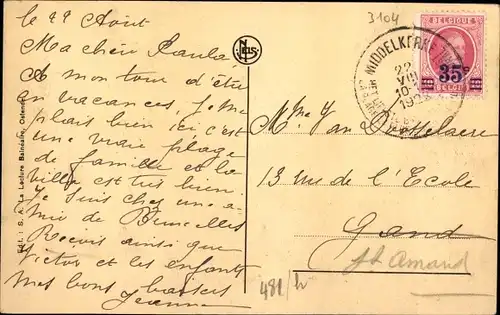 le 22 Août
Ma chère Paula,
A mon tour d'être
en vacances, je me
plais bien ici, c'est
une vraie plage
de famille et la
villa est très bien.
Je suis chez une a-
mie de Bruxelles
Reçois ainsi que
Victor et les enfants
mes bons baisers
Jeanne
Edit.: S. A. La Lecture Balnéaire, Ostende
NELS
3104
MIDDELKERKE
22
VIII
10-
19
BELGIQUE
35c
BELGIË
Mme Van
13 rue de l'Ecole
Gand
St Amand
481/h